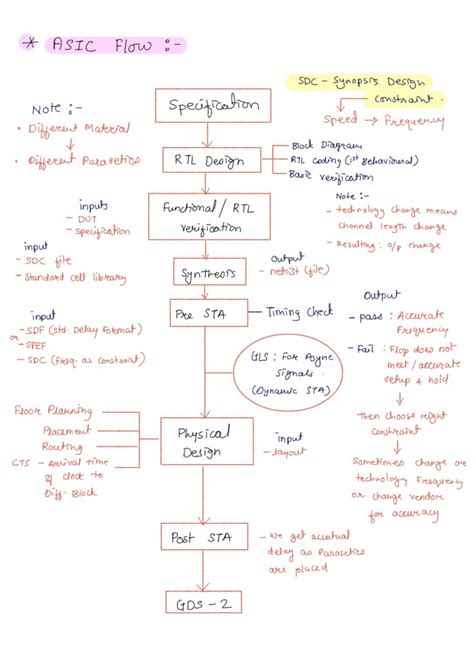 * ASIC Flow :-
SDC - Synopsis Design
Constraint.
Speed → Frequency
Note :-
• Different Material
• Different Parasetics
Specification
RTL Design
- Block Diagram
- RTL coding (1st Behavioural)
- Basic verification
Note :-
- technology change means
channel length change
- Resulting : o/p change
inputs
- DUT
- Specification
Functional / RTL
verification
input
- SDC file
- Standard cell library
Synthesis
Output
- netlist (file)
Pre STA
- Timing Check
input
- SDF (Std. Delay Format)
or
- SPEF
- SDC (Freq. as constraint)
Output
- pass : Accurate
Frequency
- Fail : Flop does not
meet / accurate
setup & hold
then choose right
Constraint
Sometimes change or
technology Frequency
or change vendor
for accuracy
GLS : For Async
Signals
(Dynamic STA)
Floor Planning
Placement
Routing
CTS - Arrival time
of clock to
Diff. Block
Physical
Design
input
- layout
Post STA
- We get accutual
delay as Parasetics
are placed
GDS - 2